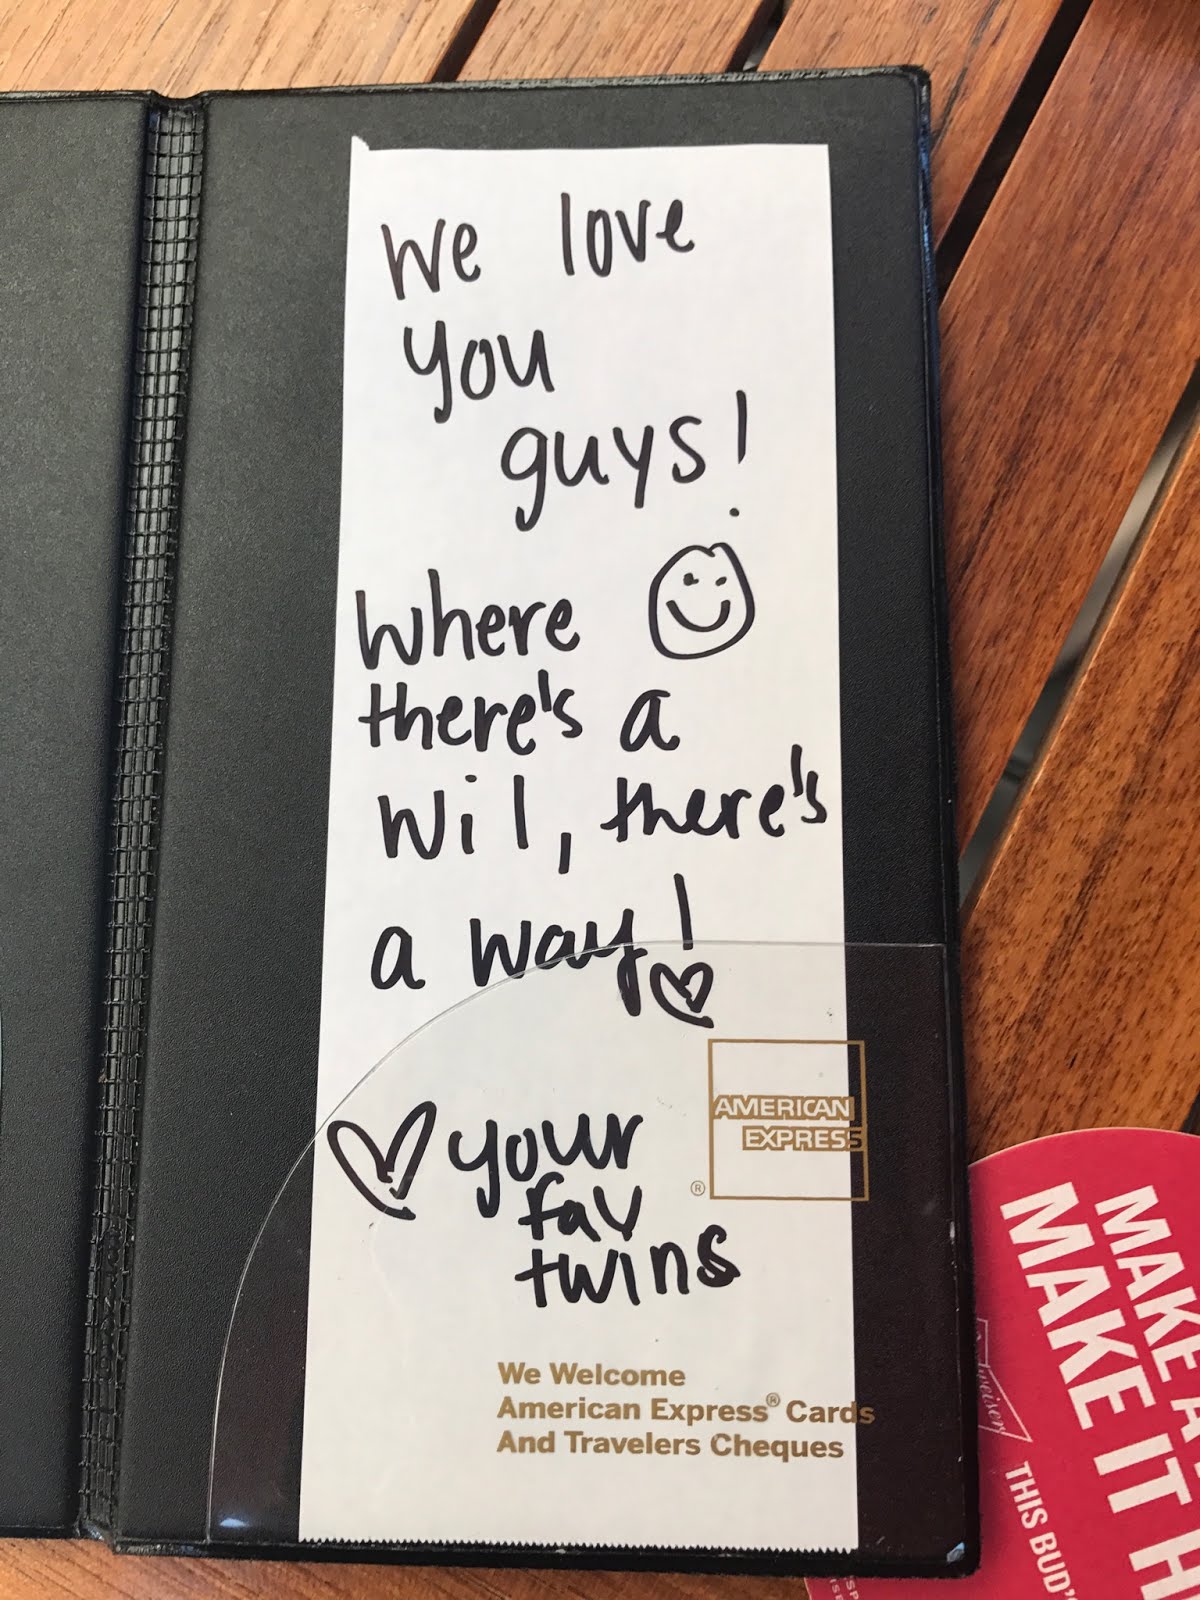 We love
you
guys!
Where
there's a
Wil, there's
a way!
your
fav
twins
AMERICAN
EXPRESS
®
We Welcome
American Express® Cards
And Travelers Cheques
MAKE
MAKE IT
Budweiser
THIS BUD'